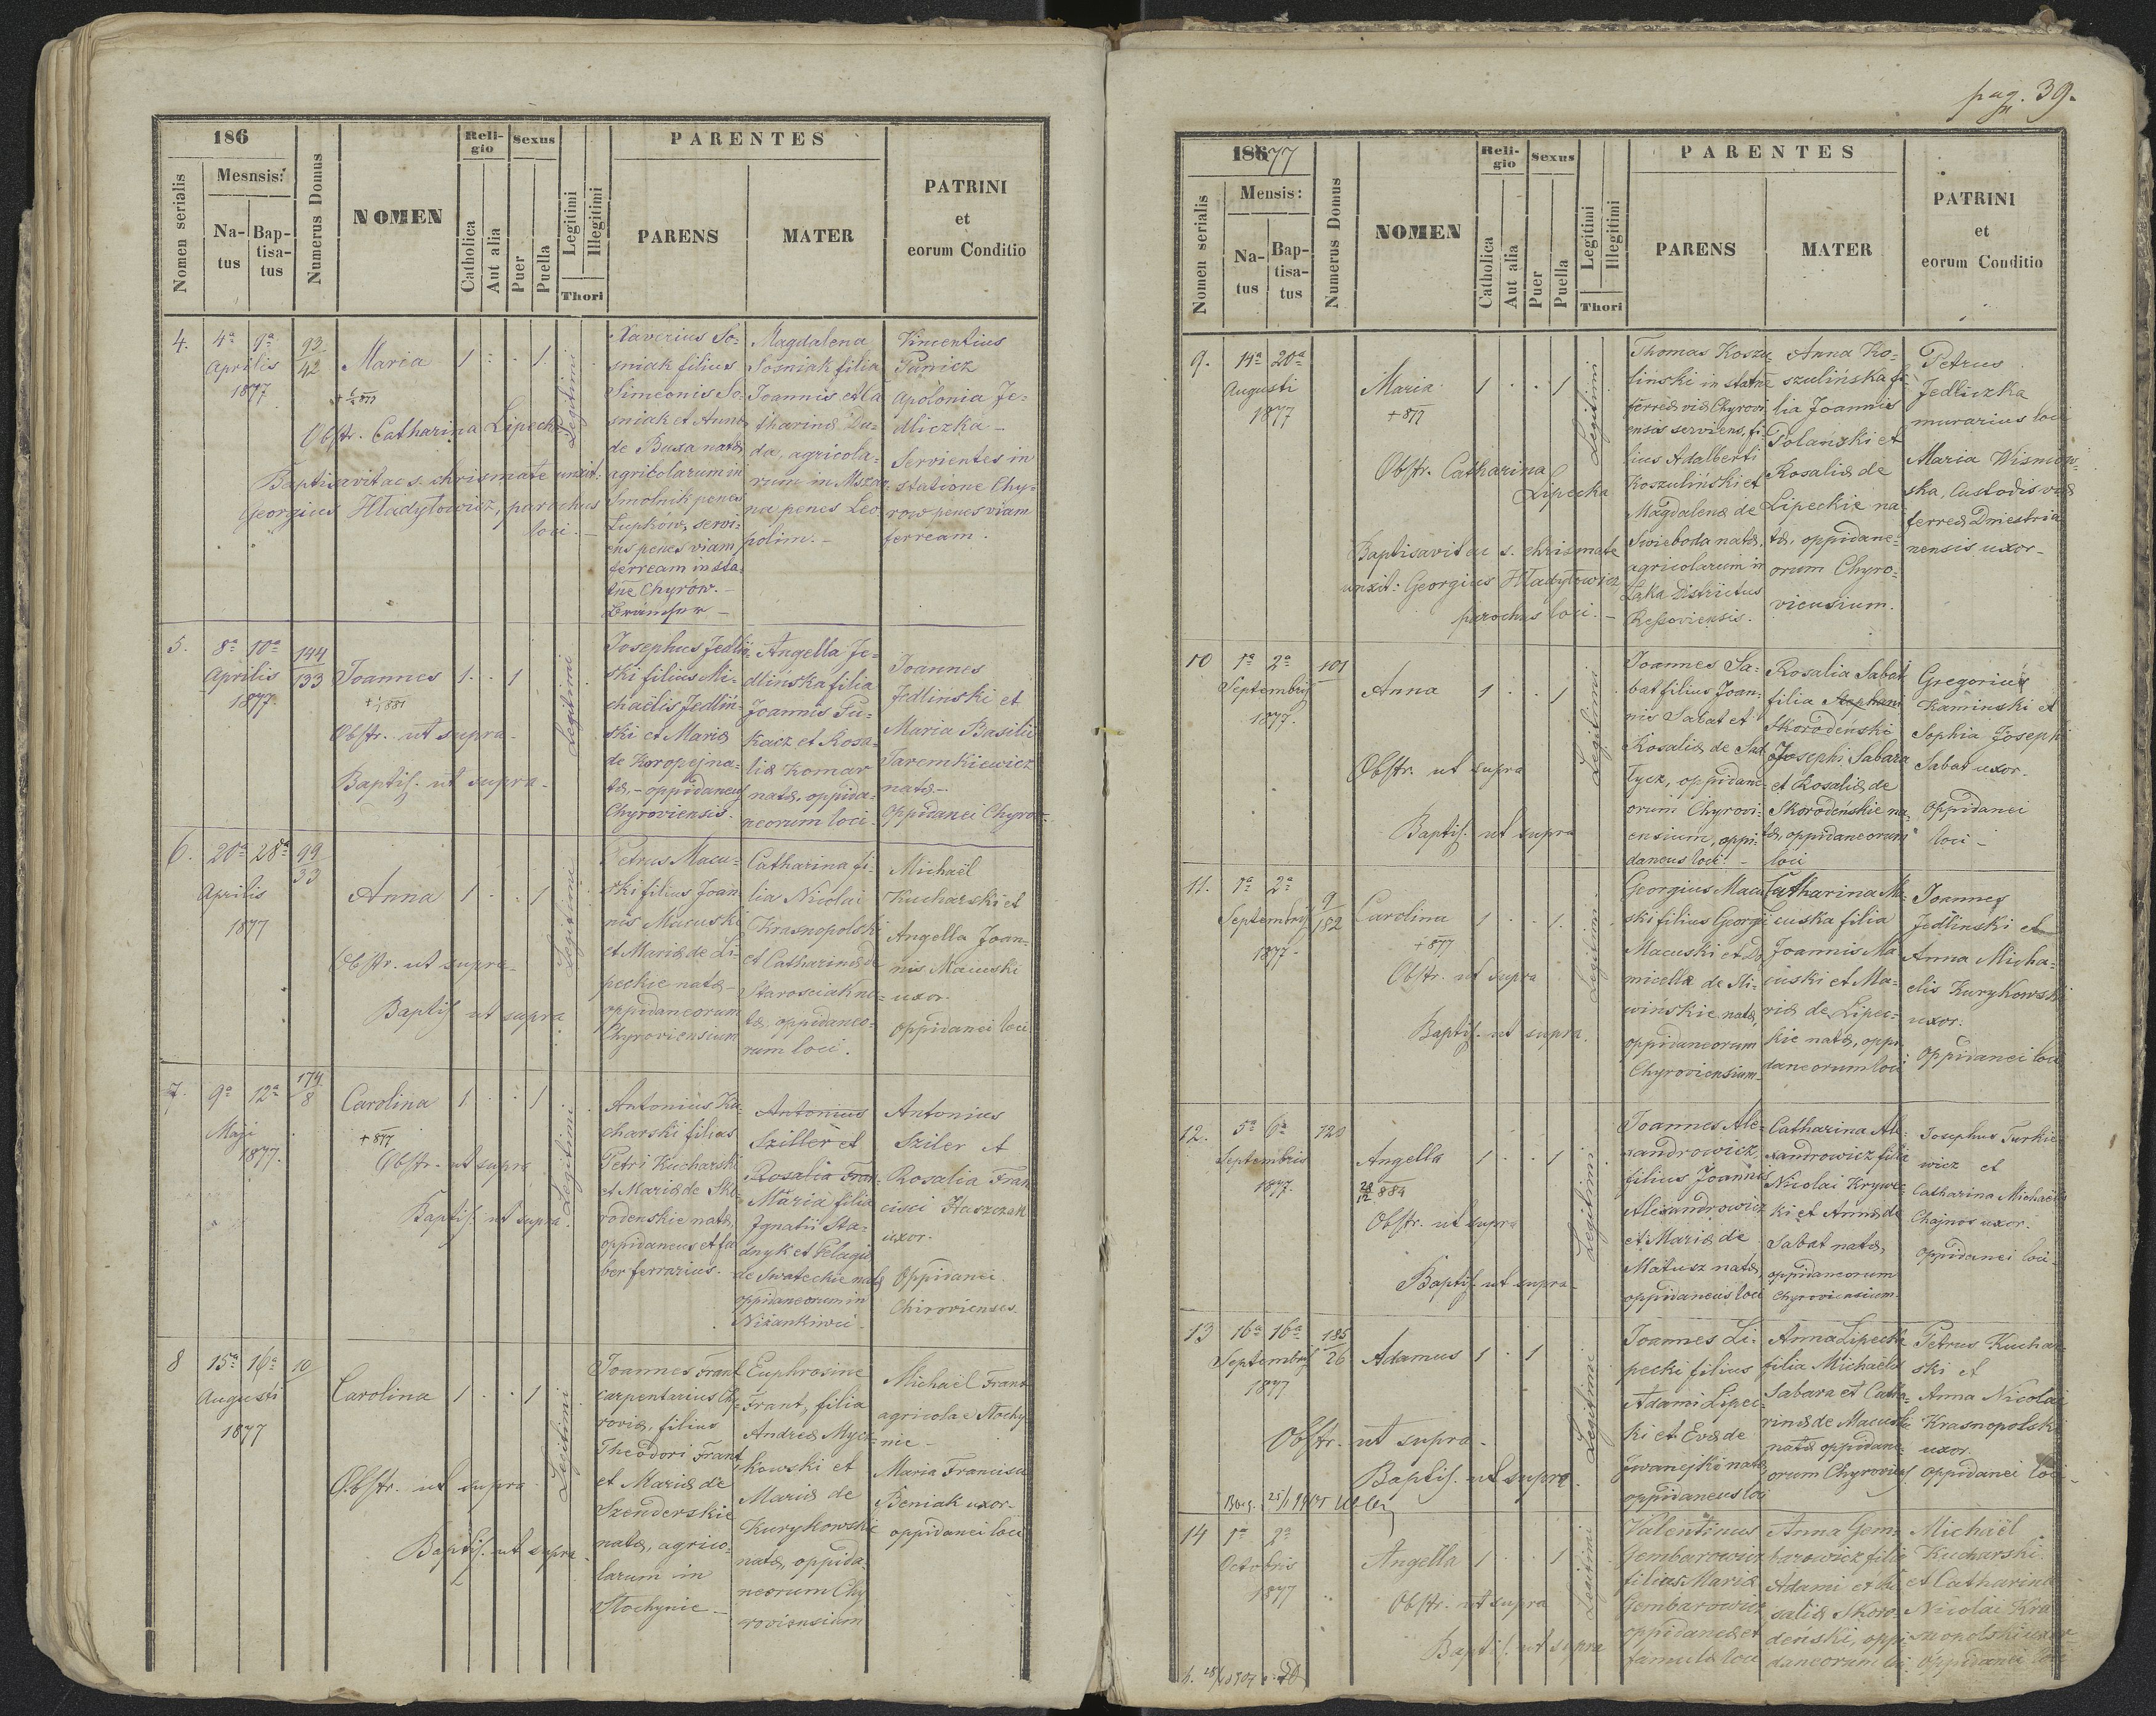 186
Nomen serialis
Mesnsis:
Na-
tus
Bap-
tisa-
tus
Numerus Domus
NOMEN
Reli-
gio
Catholica
Aut alia
Sexus
Puer
Puella
Legitimi
Illegitimi
Thori
PARENTES
PARENS
MATER
PATRINI
et
eorum Conditio
4.
4ª 9ª
Aprilis
1877
93
42
Maria
1 1
Legitimi
Obstr. Catharina Lipecka
Baptisavit ac s. chrismate unxit:
Georgius Hładyłowicz, parochus
loci.
Xaverius So-
sniak filius
Simeonis So-
sniak et Anna
de Busa natæ
agricolarum in
Smolnik penes
Łupków, servi-
ens penes viam
ferream in sta-
tne Chyrów. -
Magdalena
Sosniak filia
Joannis et Ca
tharinæ Du-
da, agricola-
rum in Mszan-
na penes Leo
polim. -
Vincentius
Panicz
Apolonia Je-
dliczka -
Servientes in
statione Chy-
row penes viam
ferream.
5.
8ª 10ª
Aprilis
1877
144
133
Joannes
1 1
Legitimi
Obstr. ut supra -
Baptis. ut supra -
Josephus Jedliń-
ski filius Mi-
chaëlis Jedliń-
ski et Mariæ
de Koropejna-
tæ, - oppidaneus
Chyroviensis.
Angella Je-
dlinska filia
Joannis Su-
kacz et Rosa-
liæ Komar
natæ, oppida-
neorum loci.
Joannes
Jedlinski et
Maria Basilii
Jaremkiewicz
nata -
Oppidanei Chyrov-
6.
20ª 28ª
Aprilis
1877
99
33
Anna
1 1
Legitimi
Obstr. ut supra -
Baptis ut supra
Petrus Macu-
ski filius Joan
nis Macuski
et Mariæ de Li-
peckie natæ -
oppidaneorum
Chyroviensium
Catharina fi-
lia Nicolai
Krasnopolski
et Catharinæ de
Starosciak na-
tæ, oppidaneo-
rum loci.
Michaël
Kucharski et
Angella Joan-
nis Macuski
uxor.
Oppidanei loci
7.
9ª 12ª
Maji
1877.
174
8
Carolina
+ 877
1 1
Legitimi
Obstr. ut supra
Baptis. ut supra.
Antonius Ku-
charski filius
Petri Kucharski
et Mariæ de Sko-
rodenskie natæ,
oppidaneus et fa
ber ferrarius.
Antonius
Sziller et
Rosalia Fran
Maria filia
Ignatii Sta-
dnyk et Pelagiæ
de Swateckie natæ
oppidaneorum in
Niżankowci
Antonius
Sziler et
Rosalia Fran
cisci Haszczak
uxor.
Oppidanei
Chirovienses
8
15ª 16ª
Augusti
1877
10
Carolina
1 1
Legitimi
Obstr. ut supra
Baptis. ut supra
Joannes Frant
carpentarius Chy-
roviæ, filius
Theodori Frant
et Mariæ de
Szenderskie
natæ, agrico-
larum in
Stochynie -
Euphrosine
Frant, filia
Andreæ Mycz-
kowski et
Mariæ de
Kurykowskie
natæ, oppida-
neorum Chy
roviensium
Michaël Frant
agricola e Stochy
nie -
Maria Francisci
Beniak uxor -
oppidanei loci
pag. 39.
18677
Nomen serialis
Mensis:
Na-
tus
Bap-
tisa-
tus
Numerus Domus
NOMEN
Reli-
gio
Catholica
Aut alia
Sexus
Puer
Puella
Legitimi
Illegitimi
Thori
PARENTES
PARENS
MATER
PATRINI
et
eorum Conditio
9.
14ª 20ª
Augusti
1877
Maria
+ 877
1 1
Legitimi
Obstr. Catharina
Lipecka
Baptisavit ac s. chrismate
unxit: Georgius Hładyłowicz
parochus loci. -
Thomas Koszu-
linski in statne
ferreæ viæ Chyrovi
ensis serviens, fi-
lius Adalberti
Koszulinski et
Magdalenæ de
Swieboda natæ,
agricolarum in
Łąka Districtus
Ressoviensis.
Anna Ko-
szulińska fi-
lia Joannis
Polanzki et
Rosaliæ de
Lipeckie na
tæ, oppidane-
orum Chyro-
viensium.
Petrus
Jedliczka
murarius loci
Maria Wisniow-
ska, Custodis viæ
ferreæ Dniestria
nensis uxor -
10
1ª 2ª
Septembris
1877.
101
Anna
1 1
Legitimi
Obstr. ut supra
Baptis. ut supra
Joannes Sa-
bat filius Joan-
nis Sabat et
Rosaliæ de Sad
łycz, oppidane-
orum Chyrovi-
ensium, oppi-
daneus loci -
Rosalia Sabat
filia Stephani
Skorodeński
Josephi Sabara
et Rosaliæ de
Skorodeńskie na-
tæ, oppidaneorum
loci
Gregorius
Kaminski et
Sophia Josephi
Sabat uxor.
Oppidanei
loci -
11.
1ª 2ª
Septembris
1877 -
9
182
Carolina
+ 877
1 1.
Legitimi
Obstr. ut supra
Baptis. ut supra.
Georgius Macu
ski filius Georgi
Macuski et Do
micellæ de Sli-
wińskie natæ,
oppidaneorum
Chyroviensium
Catharina Ma-
cuska filia
Joannis Ma
cuski et Ma-
riæ de Lipec-
kie natæ, oppi
daneorum loci
Joannes
Jedlinski et
Anna Micha-
elis Kurykowski
uxor.
Oppidanei loci
12.
5ª 6ª
Septembris
1877.
120
Angella
28
12 884
1 1
Legitimi
Obstr. ut supra
Baptis. ut supra -
Joannes Ale-
xandrowicz,
filius Joannis
Alexandrowicz
et Mariæ de
Matusz natæ,
oppidaneus loci
Catharina Ale-
xandrowicz filia
Nicolai Krywe-
ki et Annæ de
Sabat natæ,
oppidaneorum
Chyroviensium.
Josephus Turkie
wicz et
Catharina Michaëlis
Chajnos uxor.
Oppidanei loci
13
16ª 16ª
Septembris
1877
185
26
Adamus
1 1
Legitimi
Obstr. ut supra -
Baptis. ut supra
Joannes Li-
pecki filius
Adami Lipec-
ki et Evæ de
Iwanejki natæ
oppidaneus loci
Anna Lipecka
filia Michaelis
Sabara et Catha-
rinæ de Macuski
natæ oppidane-
orum Chyrovien.
Petrus Kuchar
ski et
Anna Nicolai
Krasnopolski
uxor.
Oppidanei loci -
14
1ª 2ª
Octobris
1877
Angella
1 1
Legitimi
Obstr. ut supra
Baptis. ut supra
Valentinus
Gembarowicz
filius Mariæ
Gembarowicz
oppidaneæ et
famula loci
Anna Gem-
barowicz filia
Adami et Ro-
saliæ Skoro-
deński, oppi-
daneorum loci
Michaël
Kucharski
et Catharina
Nicolai Kra
snopolski uxor
Oppidanei loci